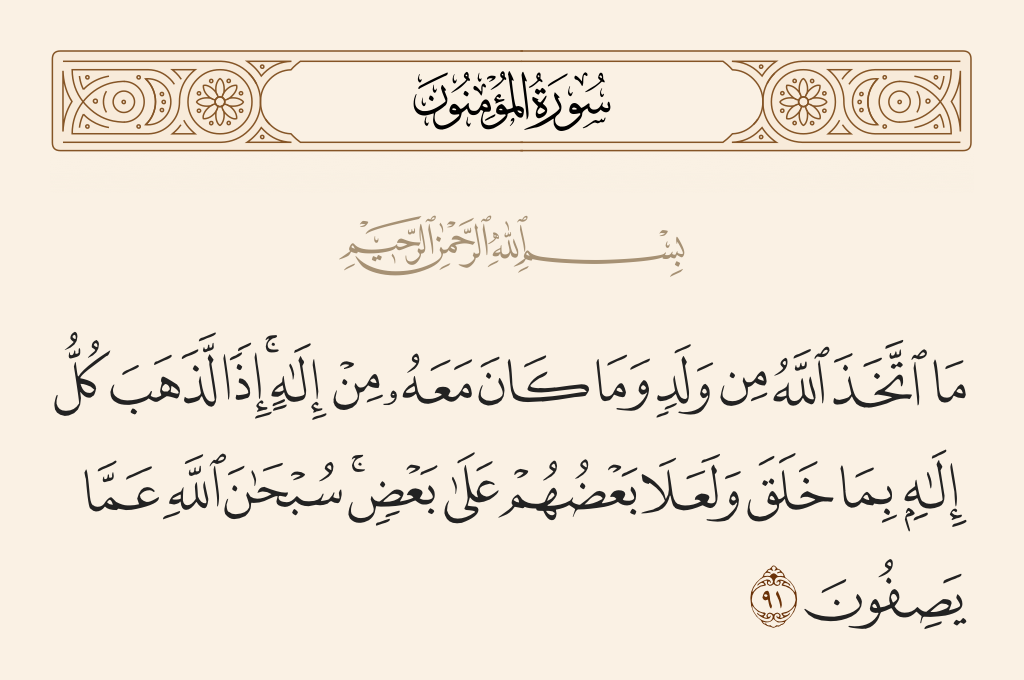 سُورَةُ المُؤْمِنُونَ
بِسْمِ ٱللَّهِ ٱلرَّحْمَٰنِ ٱلرَّحِيمِ
مَا ٱتَّخَذَ ٱللَّهُ مِن وَلَدٍ وَمَا كَانَ مَعَهُۥ مِنْ إِلَـٰهٍ ۚ إِذًا لَّذَهَبَ كُلُّ
إِلَـٰهٍۭ بِمَا خَلَقَ وَلَعَلَا بَعْضُهُمْ عَلَىٰ بَعْضٍ ۚ سُبْحَـٰنَ ٱللَّهِ عَمَّا
يَصِفُونَ ٩١